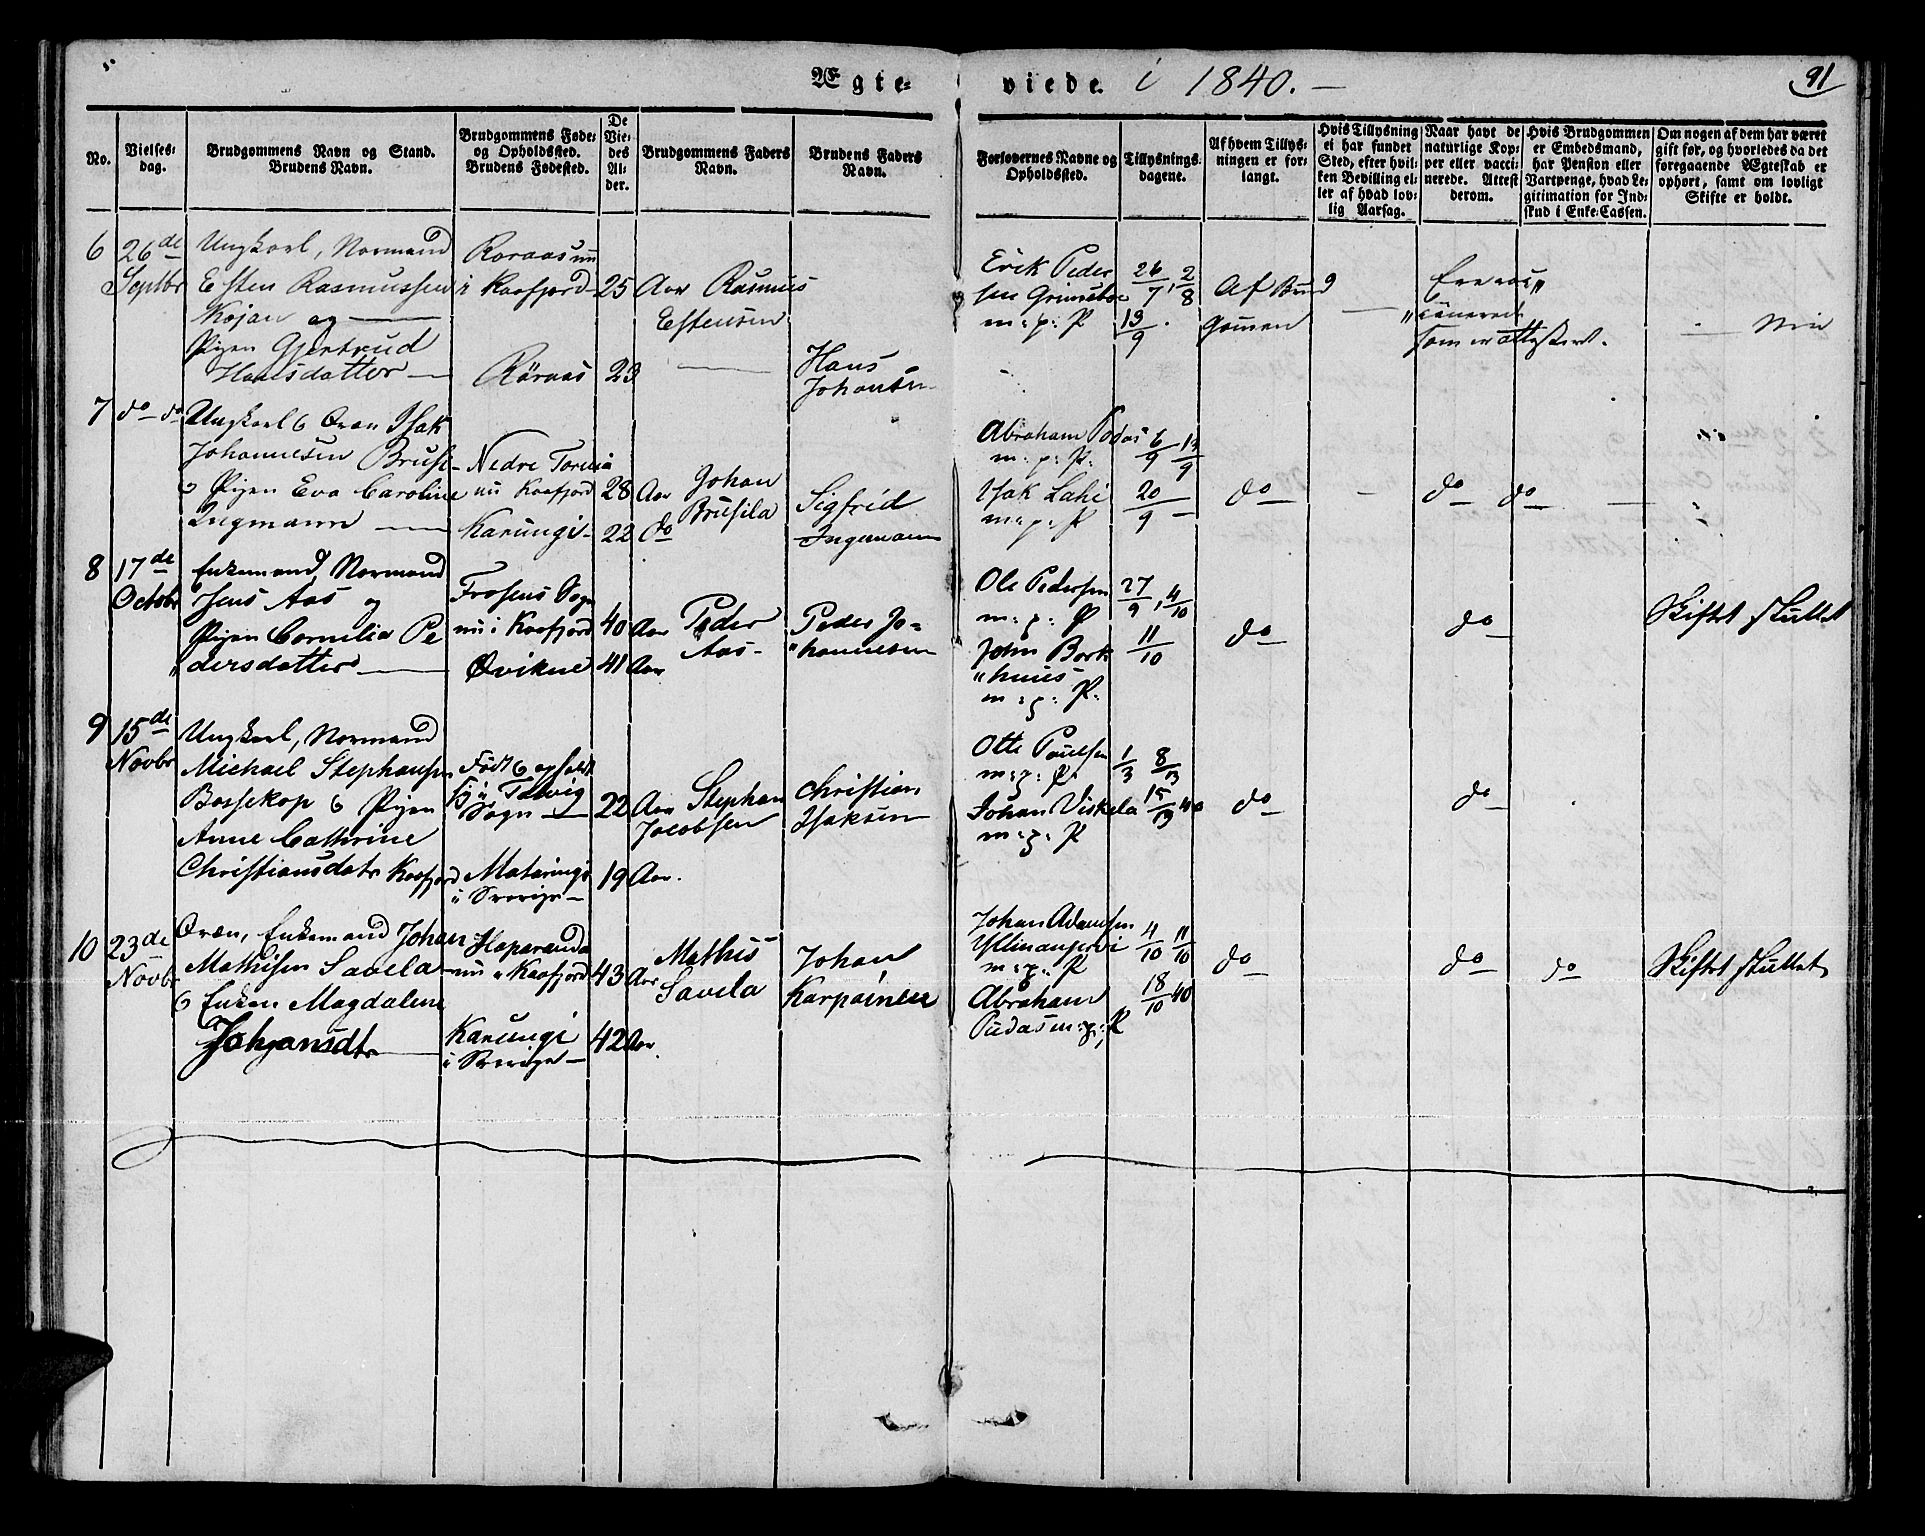 Ægte-
viede. i 1840. —
91
No.
Vielses-
dag.
Brudgommens Navn og Stand.
Brudens Navn.
Brudgommens Føde-
og Opholdssted.
Brudens Fødested.
De
Vie-
des
Al-
der.
Brudgommens Faders
Navn.
Brudens Faders
Navn.
Forlovernes Navne og
Opholdssted.
Tillysnings-
dagene.
Af hvem Tillys-
ningen er for-
langt.
Hvis Tillysning
ei har fundet
Sted, efter hvil-
ken Bevilling el-
ler af hvad lov-
lig Aarsag.
Naar havt de
naturlige Kop-
per eller vacci-
nerede. Attest
derom.
Hvis Brudgommen
er Embedsmand,
har Pension eller
Vartpenge, hvad Le-
gitimation for Ind-
skud i Enke-Cassen.
Om nogen af dem har været
gift før, og hvorledes da det
foregaaende Ægteskab er
ophørt, samt om lovligt
Skifte er holdt.
6
26de
Septbr
Ungkarl, Normand
Esten Rasmussen
Kojan og —
Pigen Gjertrud
Hansdatter —
Roraas nu
i Kaafjord
Röraas
25 Aar
23
Rasmus
Estensen
—
Hans
Johansen
Erik Peder
sen Grimsboe
m: p: P
26/7, 2/8
13/9.
Af Brud
gommen
—
Ere vac„
„cinerede
som er attesteret.
— Nei
7
do do
Ungkarl & Qvæn Isak
Johannesen Brusi-
& Pigen Eva Caroline
Ingmann —
Nedre Tornia
nu Kaafjord
Karungi-
28 Aar
22 do
Johan
Brusila
Sigfrid
Ingemann
Abraham Podas
m: p: P.
Isak Lahi
m: p: P
6/9 13/9
20/9 —
do
—
do
do
—
8
17de
Octobr
Enkemand, Normand
Jens Aas og
Pigen Cornelia Pe
„dersdatter —
Frosens Sogn
nu i Kaafjord
Qvikne
40 Aar
41 Aar
Peder
Aas-
Peder Jo=
„hannesen
Ole Pedersen
m: p: P
John Bork
„huus
m: p: P.
27/9, 4/10
11/10
do
do
Skiftet sluttet
9
15de
Novbr
Ungkarl, Normand
Michael Stephansen
Bossekop & Pigen
Anne Cathrine
Christiansdatr Kaafjord
Födt & opholdt
sig i Talvig
Sogn —
Mataringi
i Sverige —
22 Aar
19 Aar.
Stephan
Jacobsen
Christian
Isaksen
Otte Paulsen
m: p: P.
Johan Viskela
m: p: P
1/3 8/13
15/13 40
do
do
10
23de
Novbr
Qvæn, Enkemand Johan
Mathisen Savela
& Enken Magdalene
Johansdtr —
Haparanda
nu i Kaafjord
Karungi
i Sverige —
43 Aar
42 Aar.
Mathis
Savela
Johan
Karpainen
Johan Adamsen
Yllinanjervi
m: p: P
Abraham
Pudas m: p: P
4/10 11/10
18/10 40
do
do
do
Skiftet sluttet